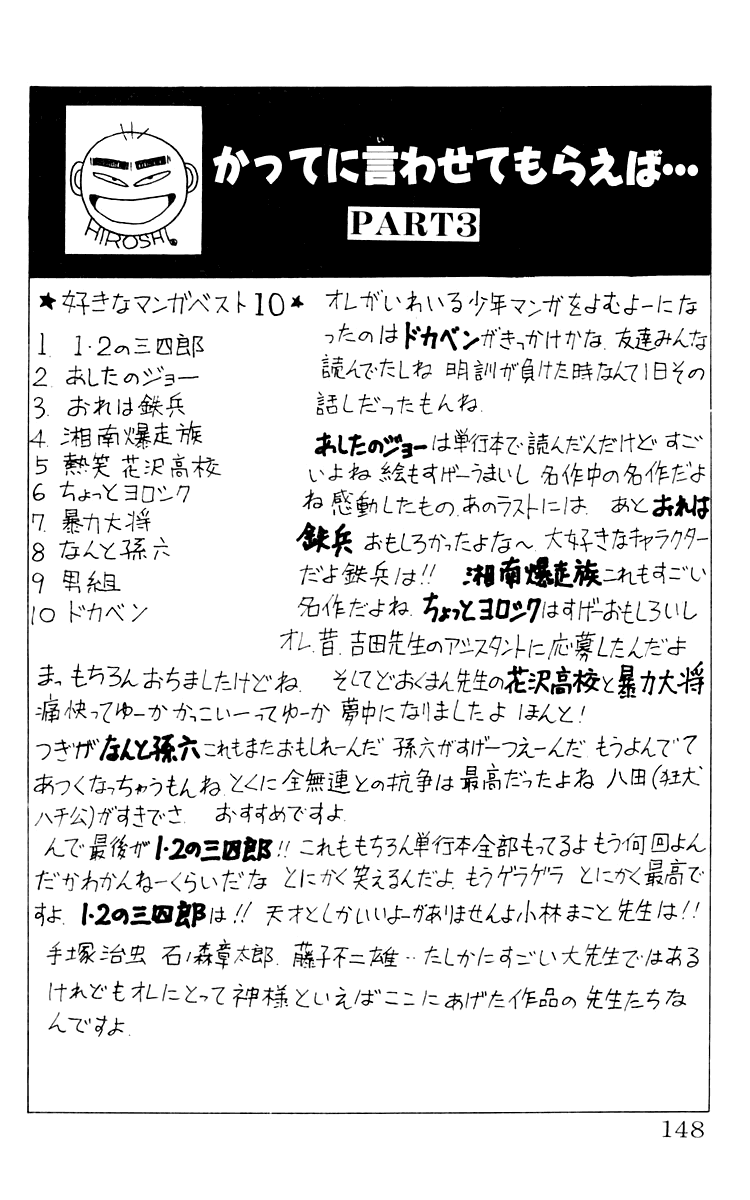 かってに言わせてもらえば…
PART3
HIROSHI.
★好きなマンガベスト10★
1. 1・2の三四郎
2. あしたのジョー
3. おれは鉄兵
4. 湘南爆走族
5 熱笑 花沢高校
6 ちょっとヨロシク
7. 暴力大将
8 なんと孫六
9 男組
10 ドカベン
オレがいわいる少年マンガをよむよーにな
ったのはドカベンがきっかけかな. 友達みんな
読んでたしね 明訓が負けた時なんて1日その
話しだったもんね.
あしたのジョーは単行本で読んだんだけど すご
いよね 絵もすげーうまいし 名作中の名作だよ
ね 感動したもの.あのラストには. あと おれは
鉄兵 おもしろかったよな〜. 大好きなキャラクター
だよ鉄兵は!! 湘南爆走族これもすごい
名作だよね. ちょっとヨロシクはすげーおもしろいし
オレ.昔. 吉田先生のアシスタントに応募したんだよ
まっもちろんおちましたけどね. そしてどおくまん先生の花沢高校と暴力大将
痛快ってゆーか かっこいーってゆーか 夢中になりましたよ ほんと!
つぎが なんと孫六 これもまたおもしれーんだ 孫六がすげーつえーんだ もうよんでて
あつくなっちゃうもんね.とくに 全無連との抗争は最高だったよね 八田(狂犬
ハチ公)がすきでさ. おすすめですよ.
んで最後が 1・2の三四郎!! これももちろん単行本全部もってるよ もう何回よん
だかわかんねーくらいだな とにかく笑えるんだよ. もうゲラゲラ とにかく最高で
すよ. 1・2の三四郎は!! 天才としかいいよーがありませんよ小林まこと先生は!!
手塚治虫 石ノ森章太郎. 藤子不二雄‥たしかにすごい大先生ではある
けれどもオレにとって神様といえばここにあげた作品の先生たちな
んですよ.
148